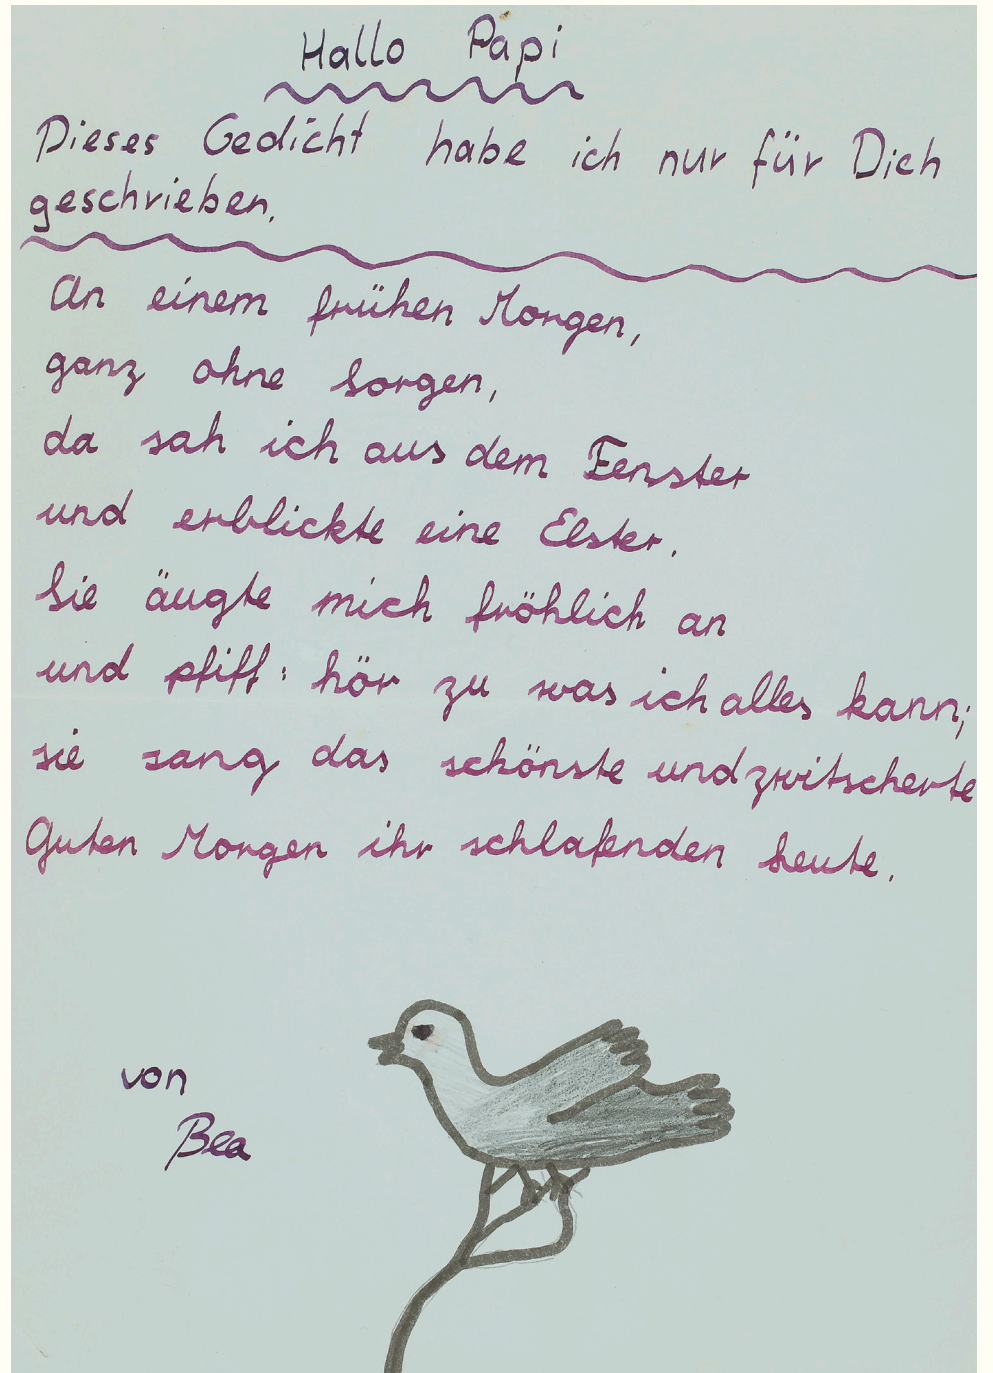 Hallo Papi
Dieses Gedicht habe ich nur für Dich
geschrieben.
An einem frühen Morgen,
ganz ohne Sorgen,
da sah ich aus dem Fenster
und erblickte eine Elster.
Sie äugte mich fröhlich an
und pfiff: hör zu was ich alles kann;
sie sang das schönste und zwitscherte
Guten Morgen ihr schlafenden Leute.
von
Bea